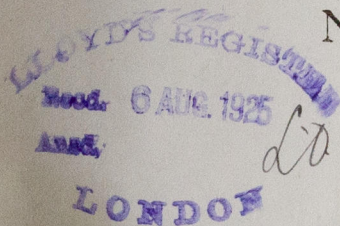 LLOYD'S REGISTER
Recd. 6 AUG. 1925
Ansd.
LONDON